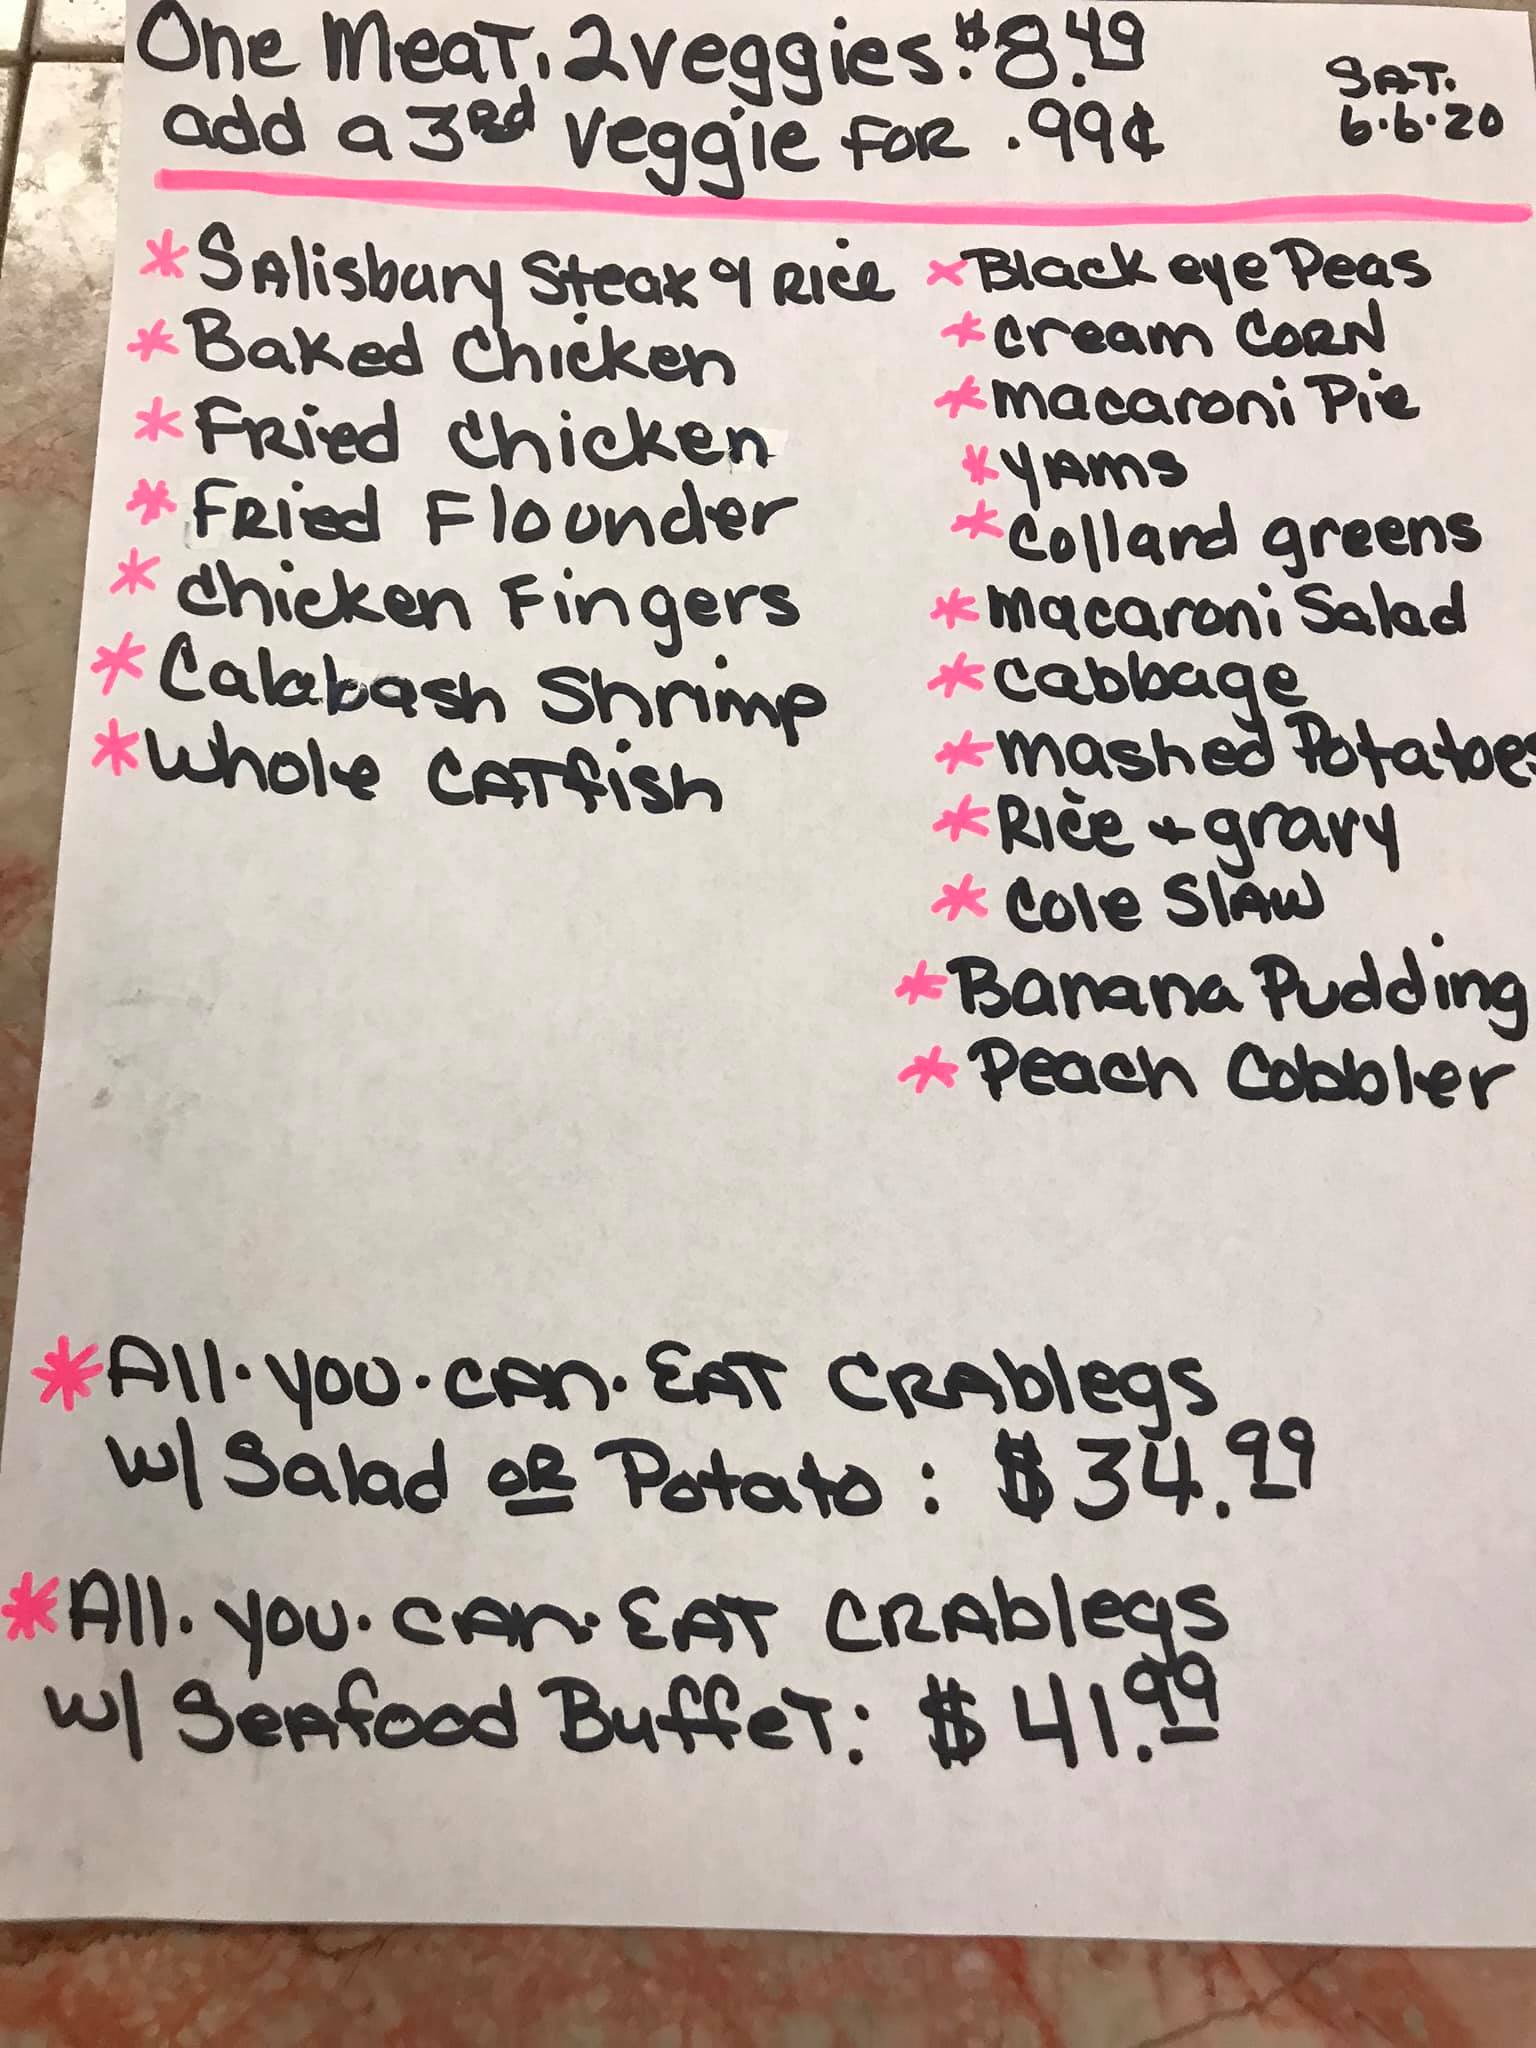 One Meat, 2 veggies: $8.49
add a 3rd veggie FOR .99¢
SAT.
6.6.20
*Salisbury Steak & Rice
*Baked Chicken
*Fried Chicken
*Fried Flounder
*Chicken Fingers
*Calabash Shrimp
*Whole CATfish
*Black eye Peas
*cream CORN
*macaroni Pie
*YAMS
*collard greens
*macaroni Salad
*cabbage
*mashed Potatoes
*Rice + gravy
*Cole SlAW
*Banana Pudding
*Peach Cobbler
*All.you.can.EAT CRAblegs
w/ Salad OR Potato: $34.99
*All.you.can.EAT CRAblegs
w/ Seafood Buffet: $41.99